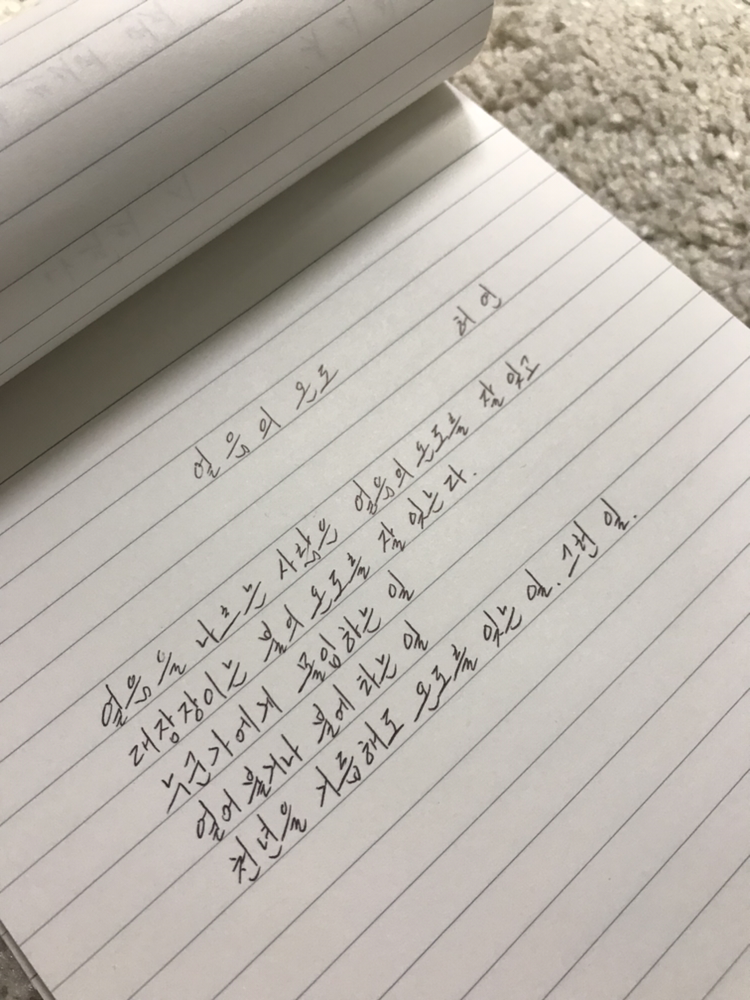 얼음의 온도
허연
얼음을 나르는 사람은 얼음의 온도를 잘 잊고
대장장이는 불의 온도를 잘 잊는다.
누군가에게 몰입하는 일
얼어붙거나 불에 타는 일
천년을 거듭해도 온도를 잊는 일. 그런 일.